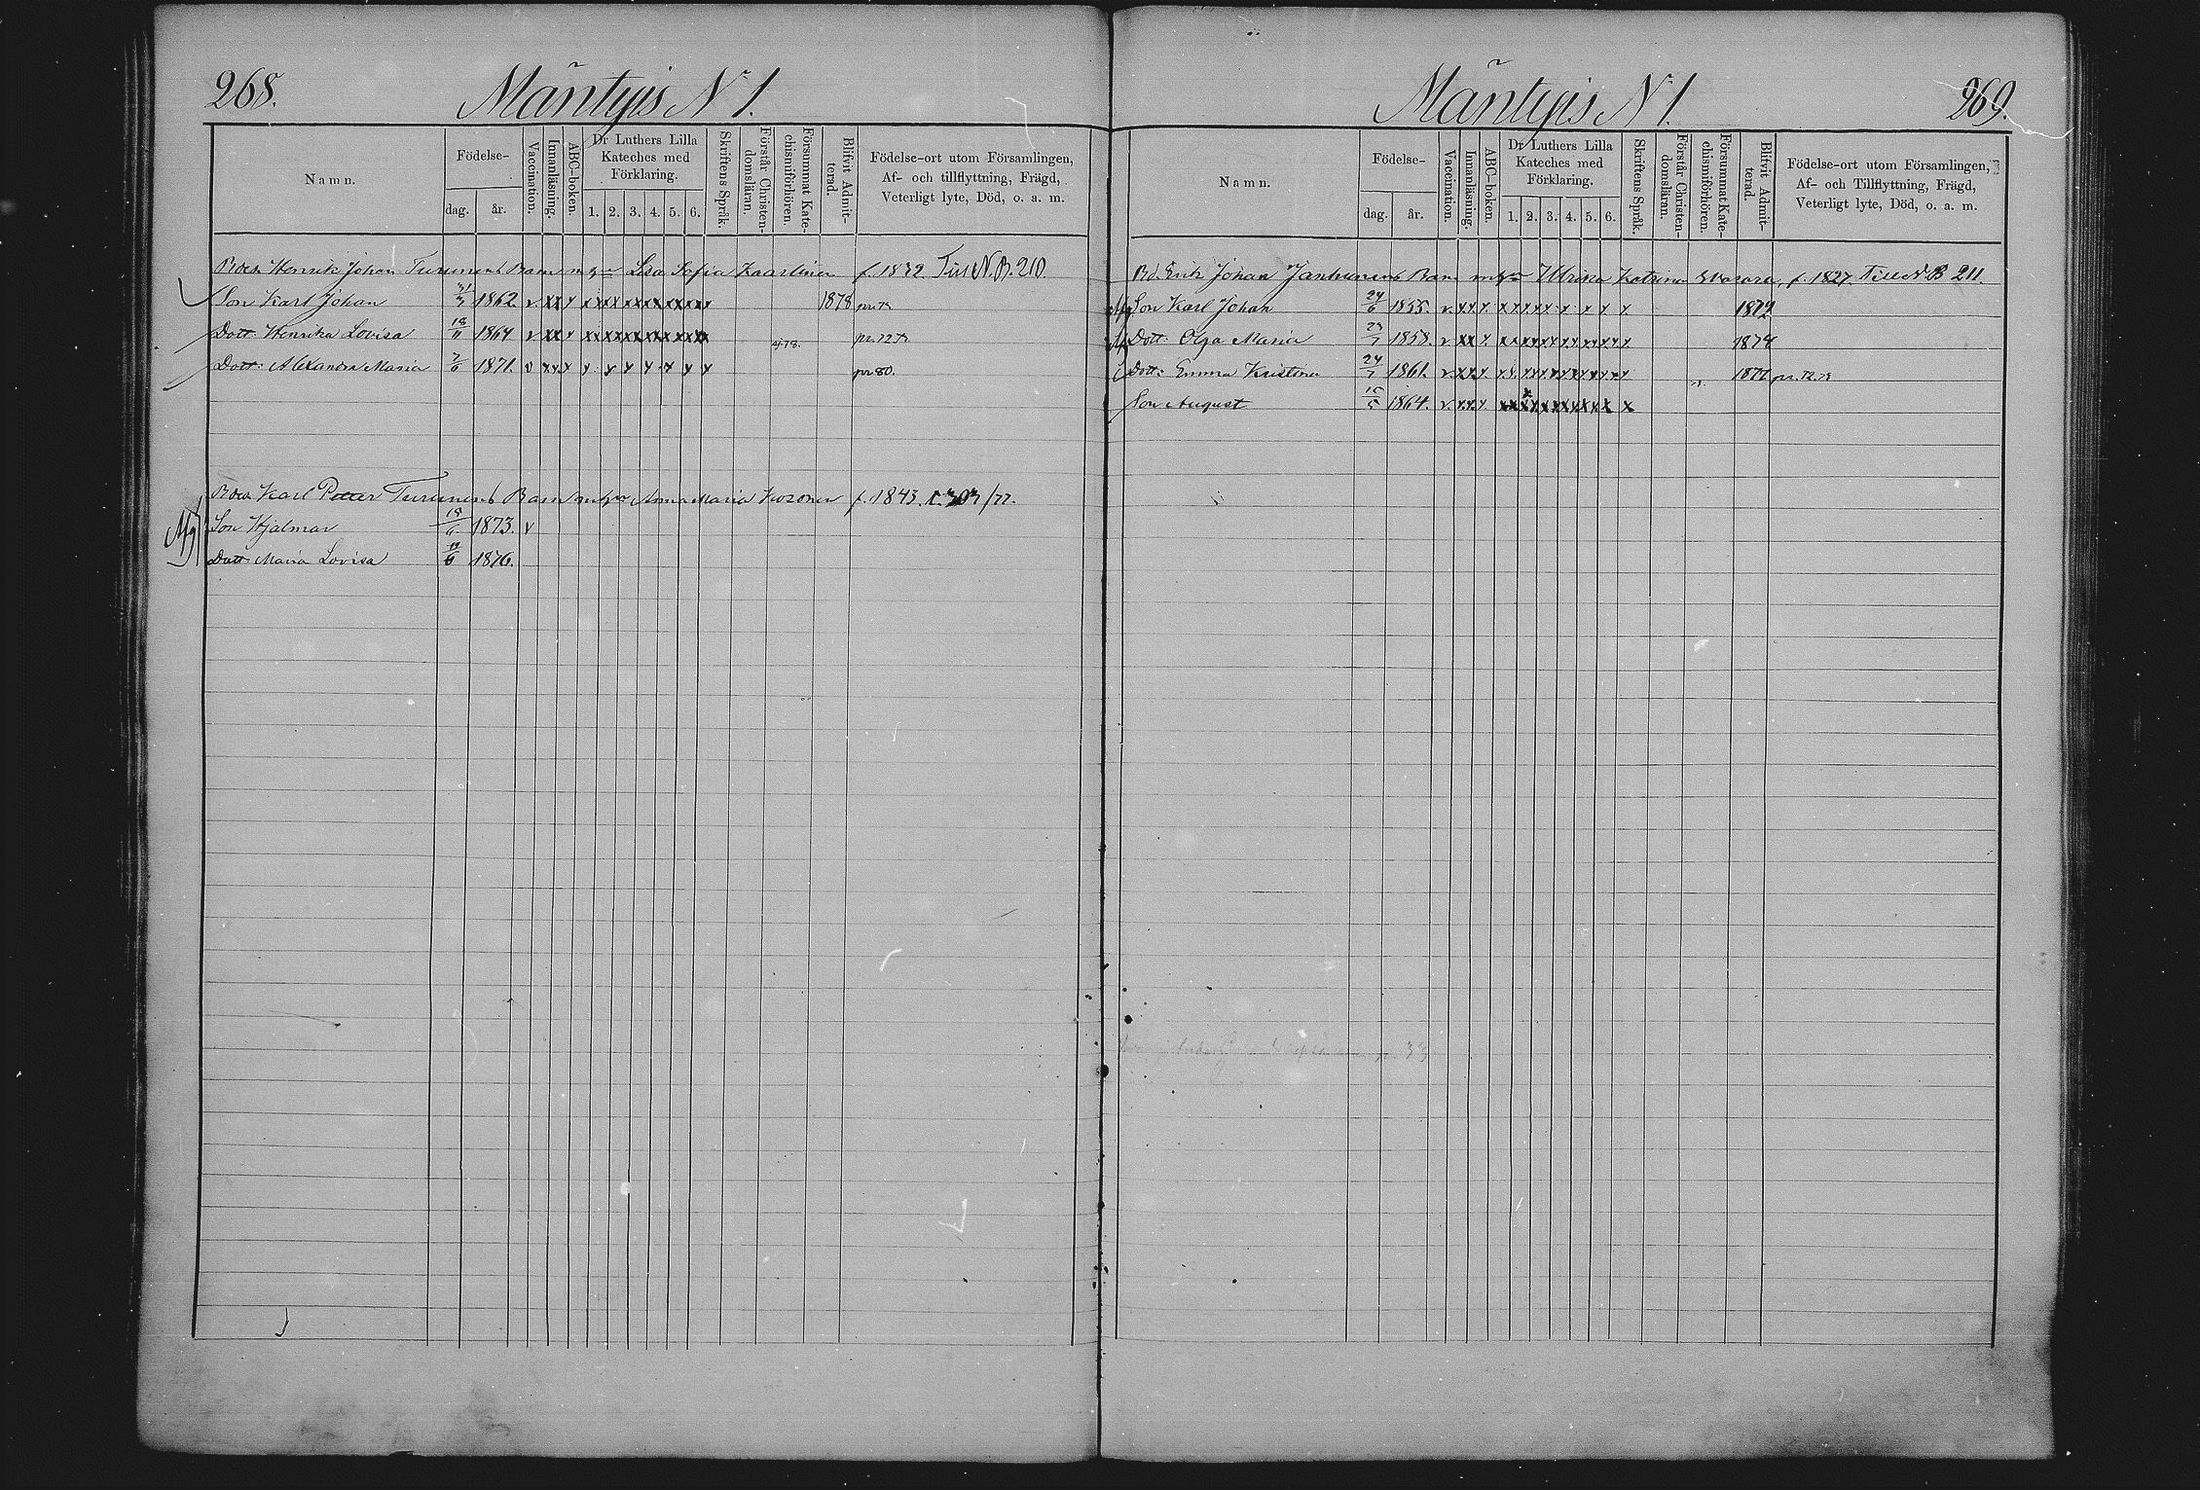 268.
Mäntyis N 1.
Namn.
Födelse-
dag.
år.
Vaccination.
Innanläsning.
ABC-boken.
Dr Luthers Lilla Kateches med Förklaring.
1. 2. 3. 4. 5. 6.
Skriftens Språk.
Förstår Christendomsläran.
Försummat Katechismiförhören.
Blifvit Admitterad.
Födelse-ort utom Församlingen,
Af- och tillflyttning, Frägd,
Veterligt lyte, Död, o. a. m.
Henrik Johan Turunens Barn m Lisa Sofia Kaartinen f. 1832 N.B. 210
Son Karl Johan 31/3 1862 v xx x xx xx xx xx xx xx 1878
Dott. Henrika Lovisa 18/11 1864 v xx x xx xx xx xx xx xx
Dott. Alexandra Maria 7/6 1871. v x x x x x x x x x pr 80.
Karl Petter Turunens Barn Anna Maria Kosonen f. 1843. /77.
Afg
Son Hjalmar 1873. v
Dott. Maria Lovisa 1876.
269.
Mäntyis N 1.
Namn.
Födelse-
dag.
år.
Vaccination.
Innanläsning.
ABC-boken.
Dr Luthers Lilla Kateches med Förklaring.
1. 2. 3. 4. 5. 6.
Skriftens Språk.
Förstår Christendomsläran.
Försummat Katechismiförhören.
Blifvit Admitterad.
Födelse-ort utom Församlingen,
Af- och Tillflyttning, Frägd,
Veterligt lyte, Död, o. a. m.
Bd. Erik Johan Jantunens Barn Ulrika Katrina f. 1827. N.B 211.
Son Karl Johan 24/6 1855. v. x x x x x x x x x x x 1872
Dott. Olga Maria 1858. v xx x xx xx xx xx xx xx x 1874
Dott. Emma Kristina 24/7 1861. v x x x xx xx xx xx xx xx x 1877
Son August 15/5 1864. v. x x x xx xx xx xx xx x x